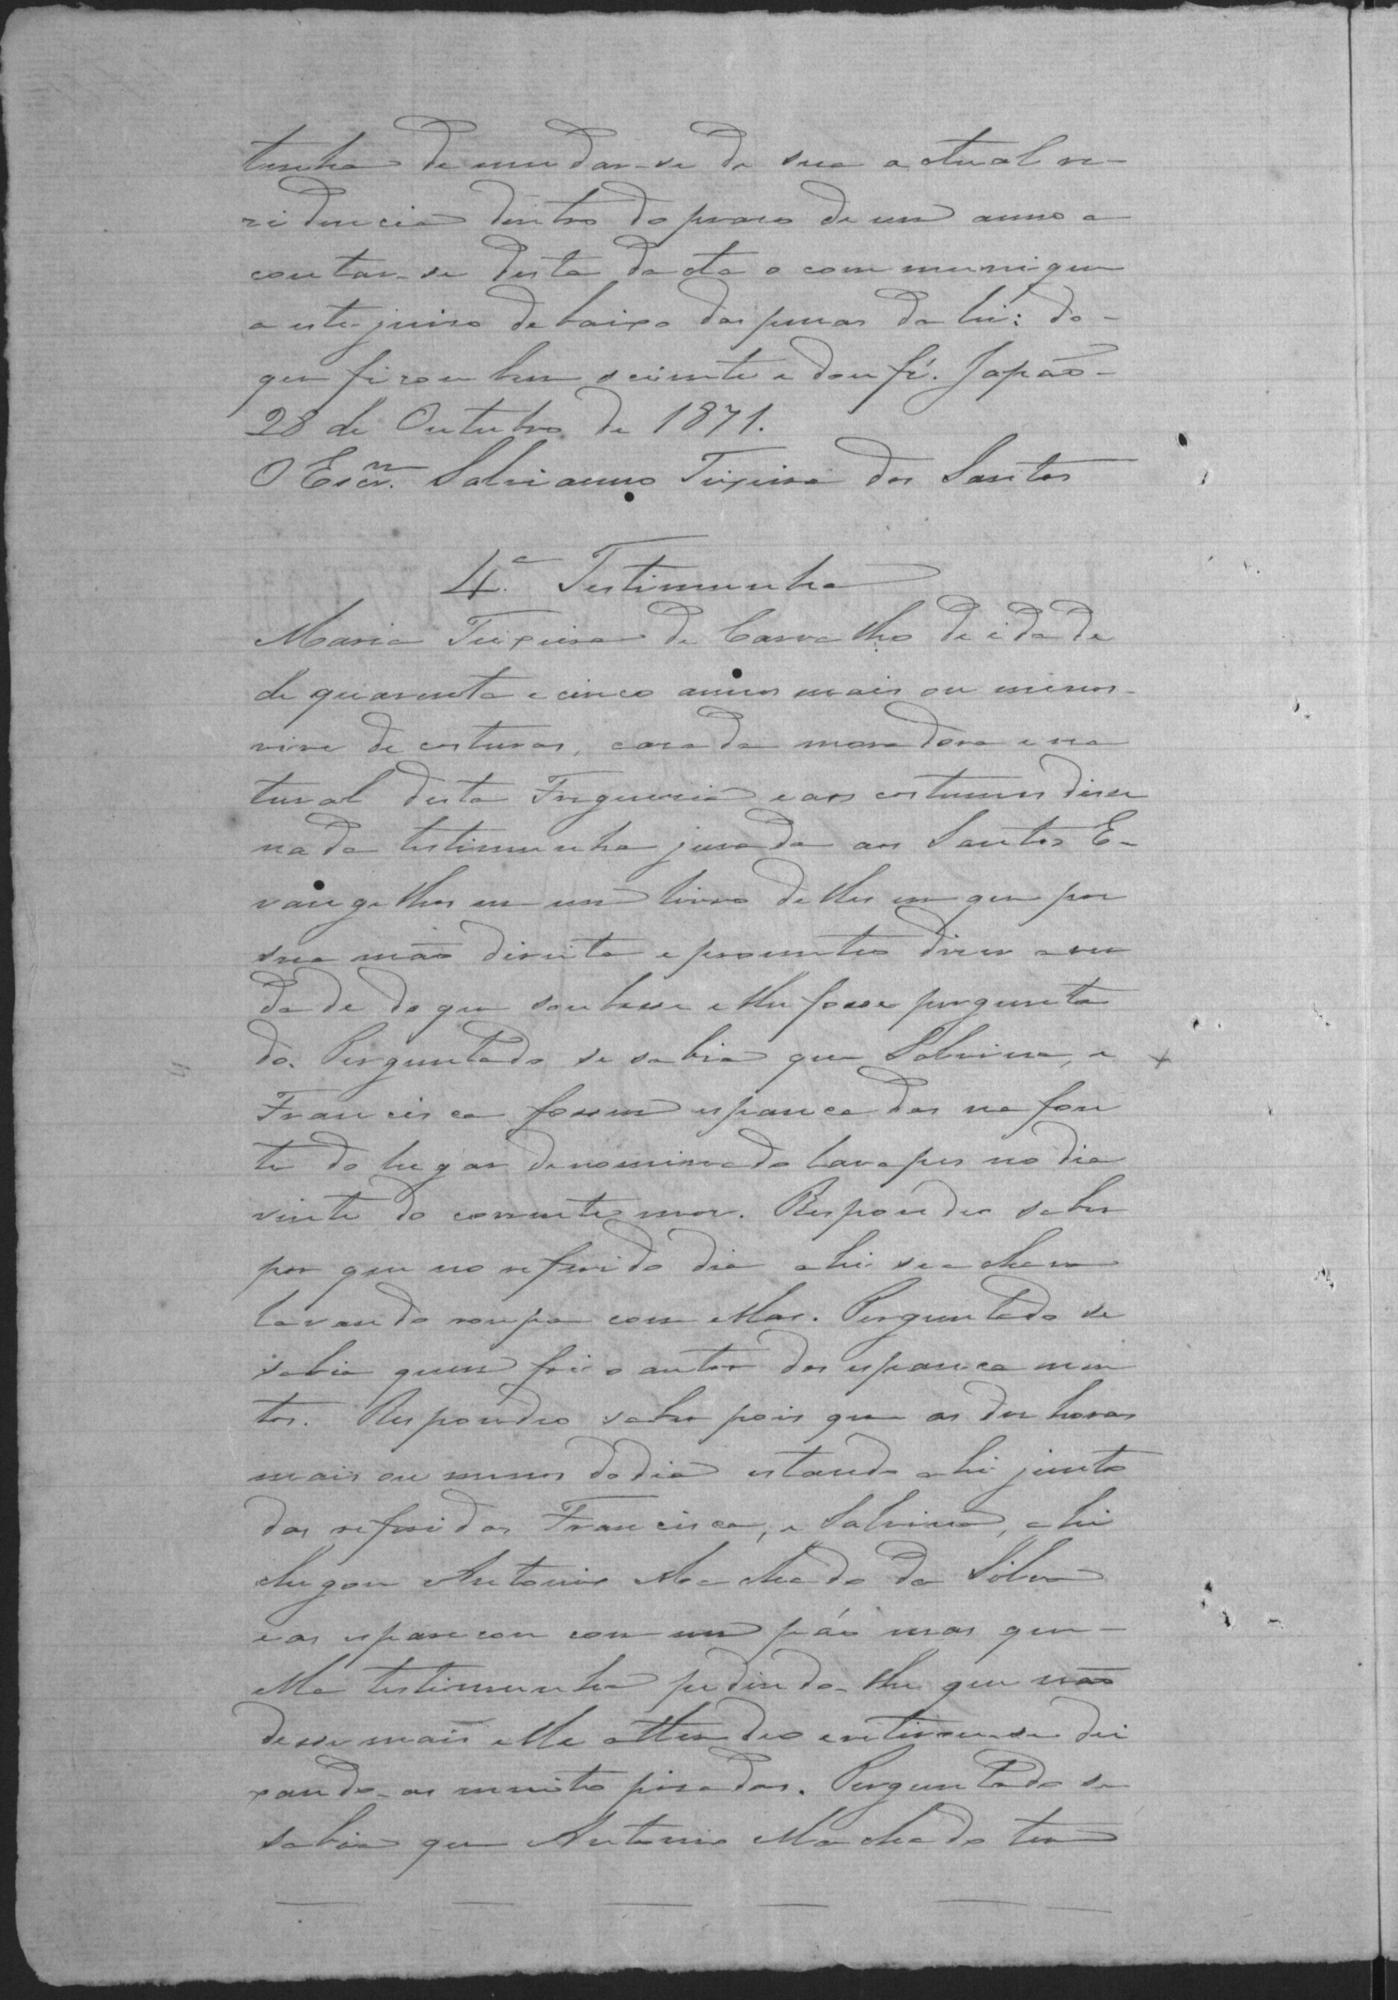 tenha de mudar-se de sua actual re-
zidencia dentro do praso de um anno a
contar-se desta dacta o communique
a este juiso debaixo das penas da lei: do-
que ficou bem sciente e dou fé. Japão-
28 de Outubro de 1871.
O Escrm. Salvianno Teixeira dos Santos
4.a Testimunha
Maria Teixeira de Carvalho de idade
de quarenta e cinco annos mais ou menos-
vive de custuras, casada moradora e na
tural desta Freguezia e aos custumes disse
nada testimunha jurada aos Santos E-
vangelhos em um livro delles em que por
sua mão direita e prometteo diser a ver
dade do que soubesse e lhe fosse pergunta
do. Perguntado se sabia que Salvina, e
Francisca fossem espancadas na fon
te do lugar denominado lavapes no dia
vinte do corrente mes. Respondeo saber
por que no referido dia ahi se achava
lavando roupa com ellas. Perguntado se
sabia quem foi o autor dos espancamen
tos. Respondeo saber pois que as des horas
mais ou menos do dia estando ahi junto
das referidas Francisca, e Salvina, ahi
chegou Antonio Machado da Silva
e as espancou com um páo mas que-
ella testimunha pedindo-lhe que não
desse mais elle attendeo e retirou-se dei
xando-as muito pisadas. Perguntado se
sabia que Antonio Machado tem